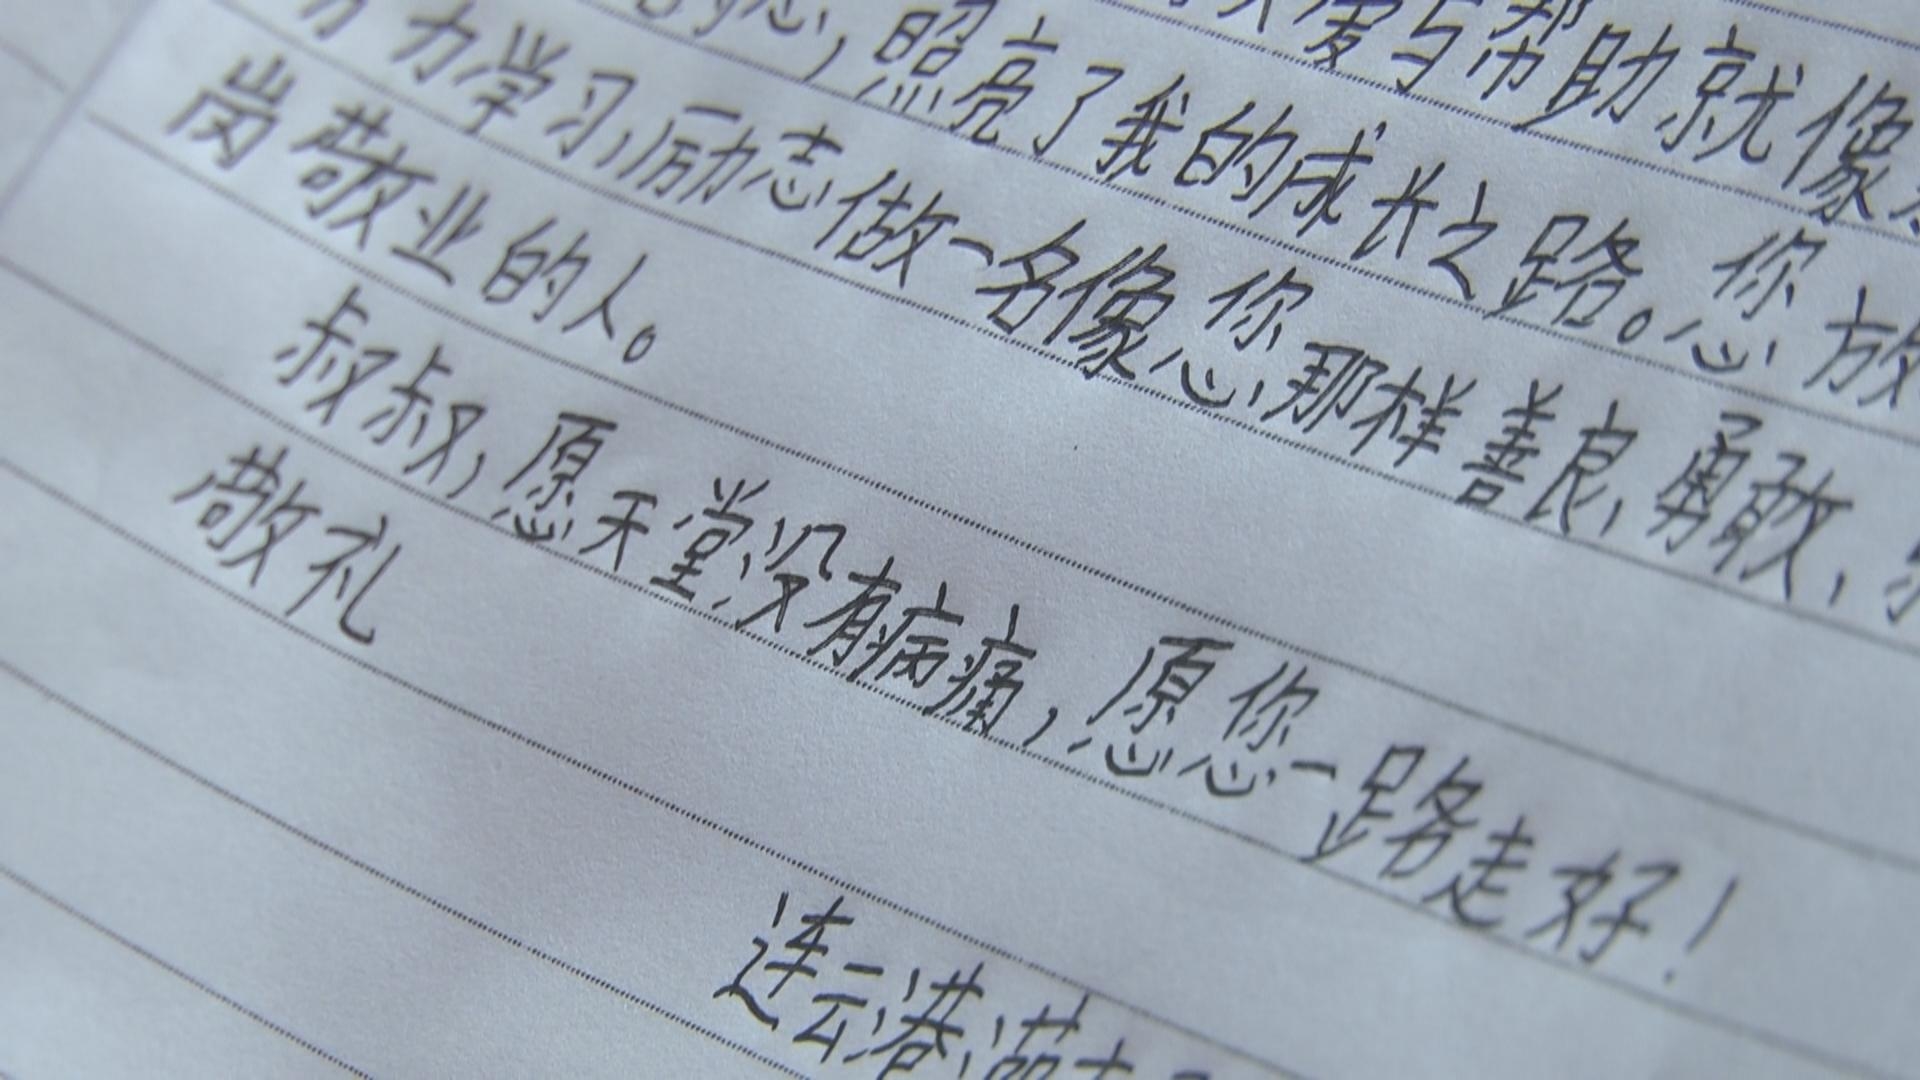 爱与帮助就像
照亮了我的成长之路。您放
力学习,励志做一名像您那样善良、勇敢、
岗敬业的人。
叔叔,愿天堂没有病痛,愿您一路走好!
敬礼
连云港